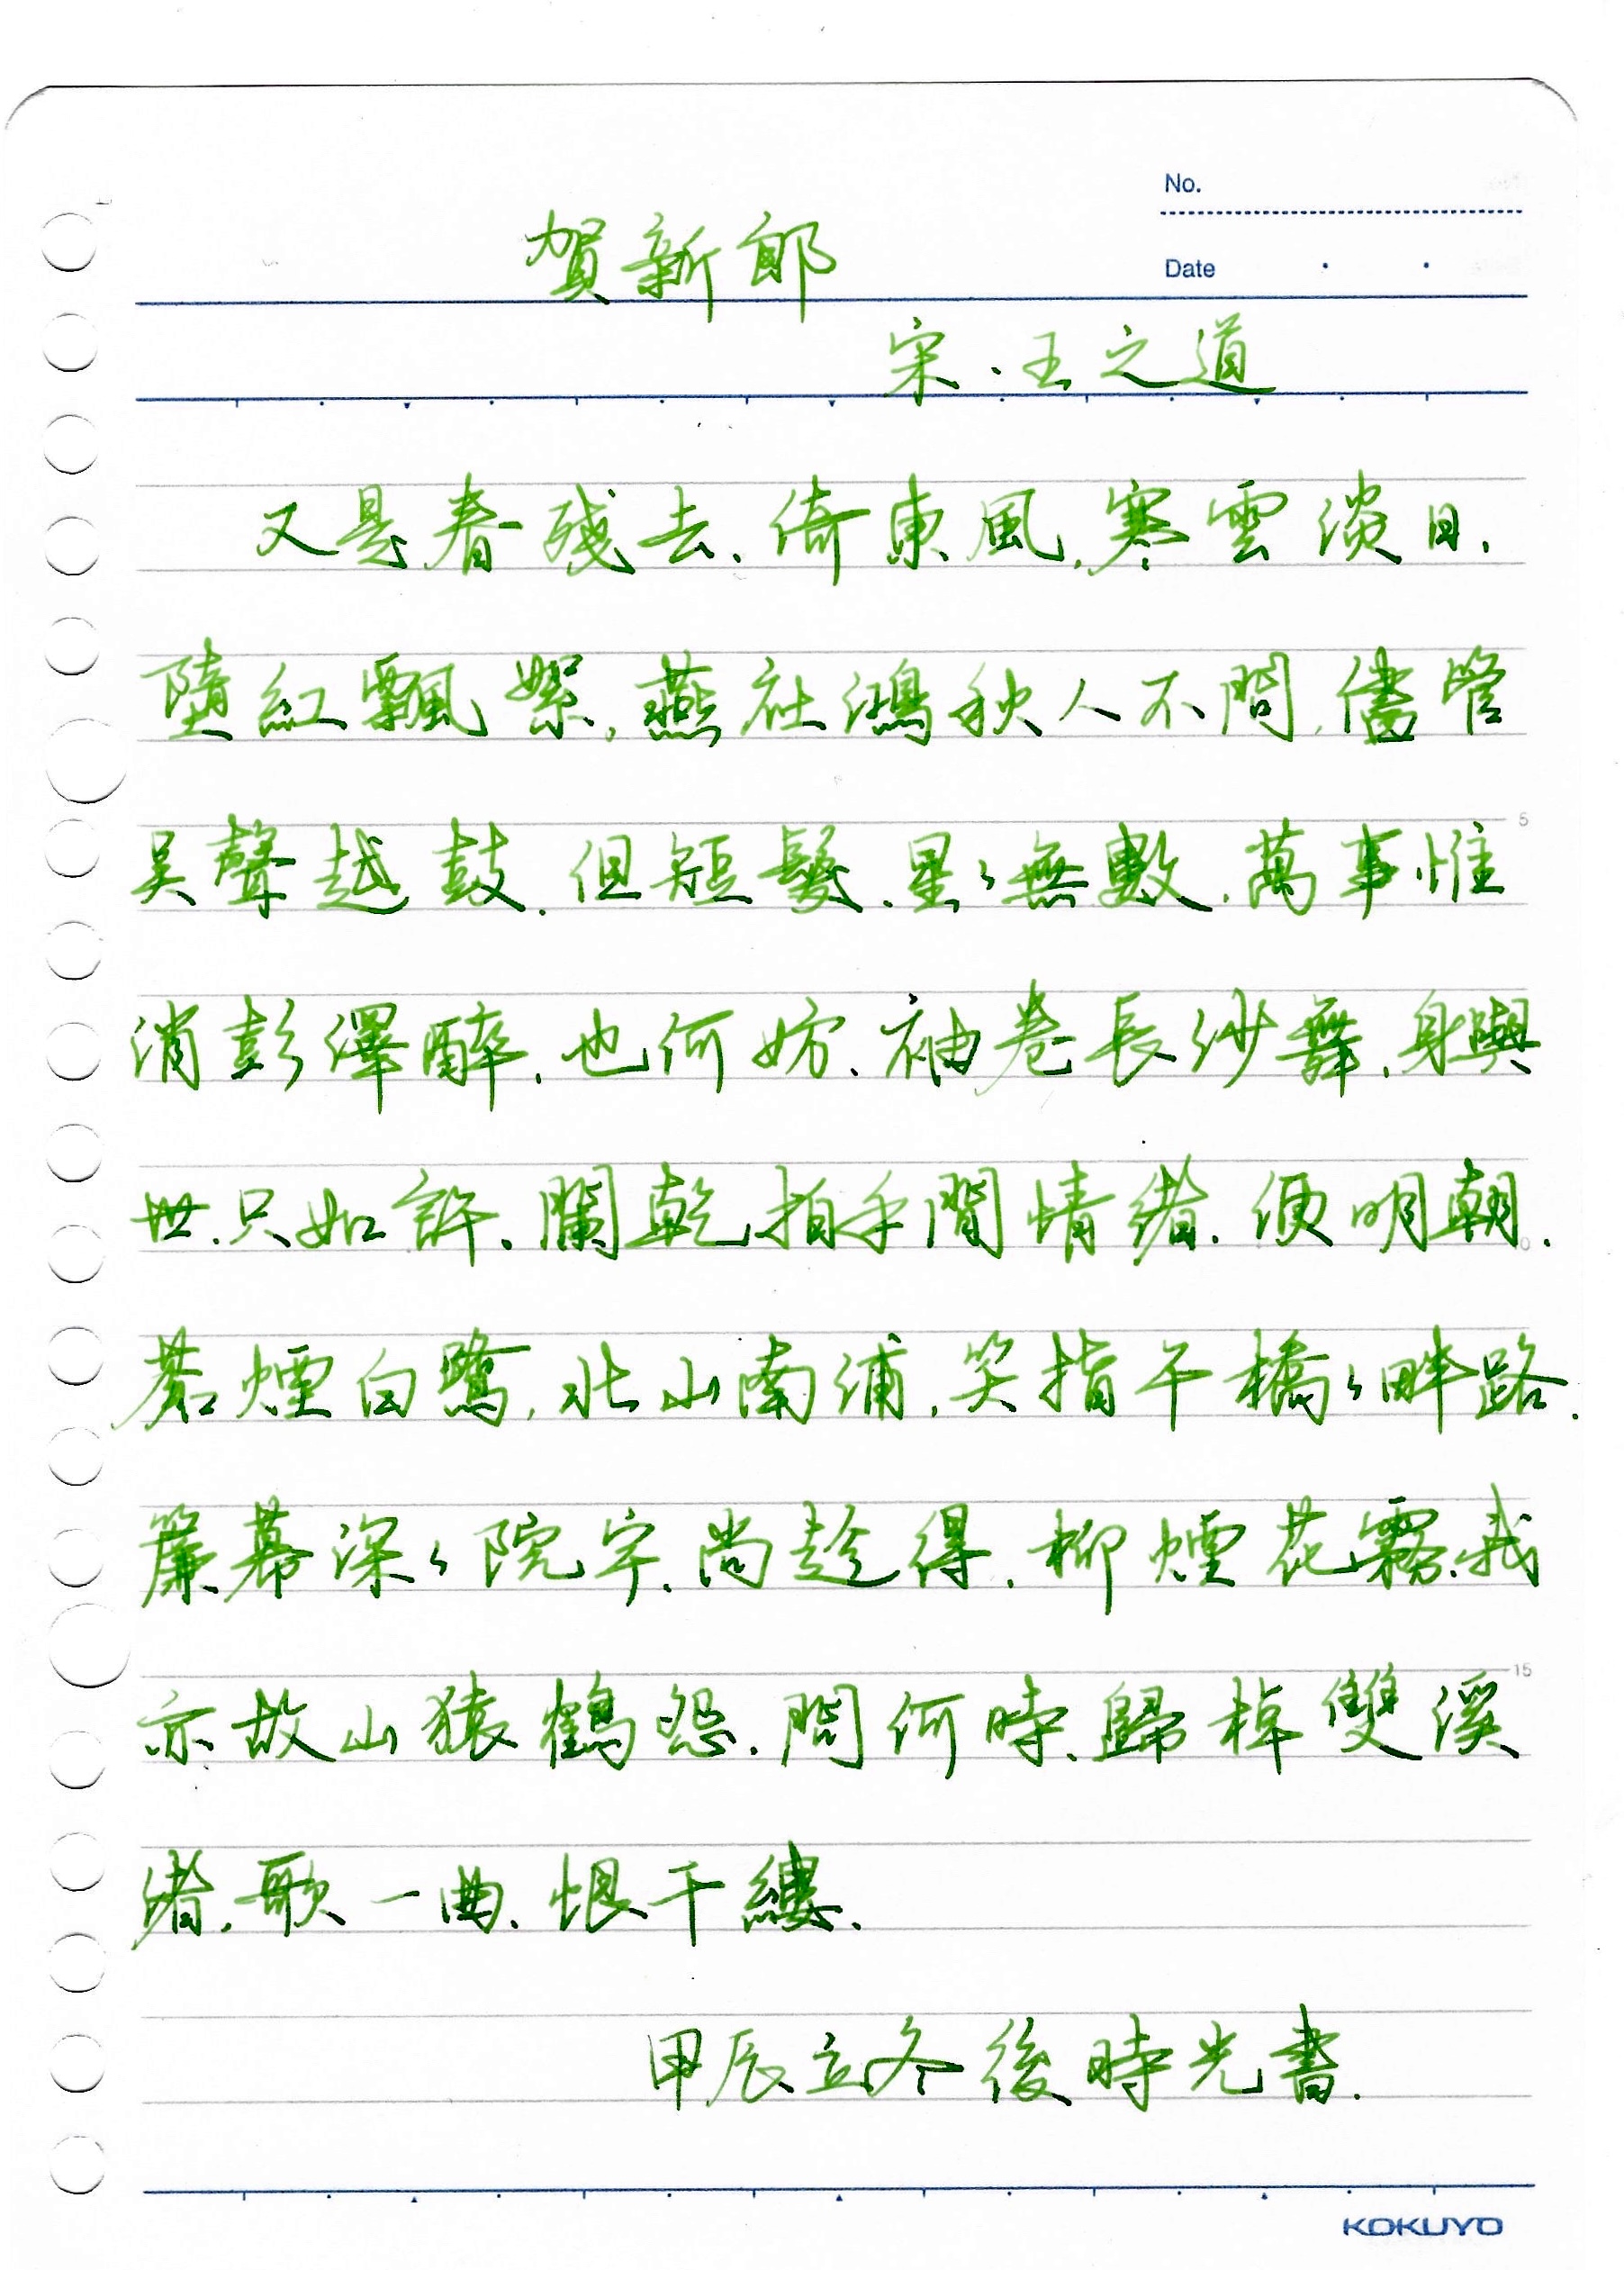 No.
賀新郎
Date
宋·王之道
又是春殘去、倚東風、寒雲淡日、
墮紅飄絮、燕社鴻秋人不問、儘管
吴聲越鼓、但短髮、星〻無數、萬事惟
消彭澤醉、也何妨、袖卷長沙舞、身與
世、只如許、闌乾拍手閒情緒、便明朝、
蒼煙白鷺、北山南浦、笑指午橋〻畔路、
簾幕深〻院宇、尚趁得、柳煙花霧、我
亦故山猿鶴怨、問何時、歸棹雙溪
渚、歌一曲、恨千縷、
甲辰立冬後時光書、
5
15
KOKUYO